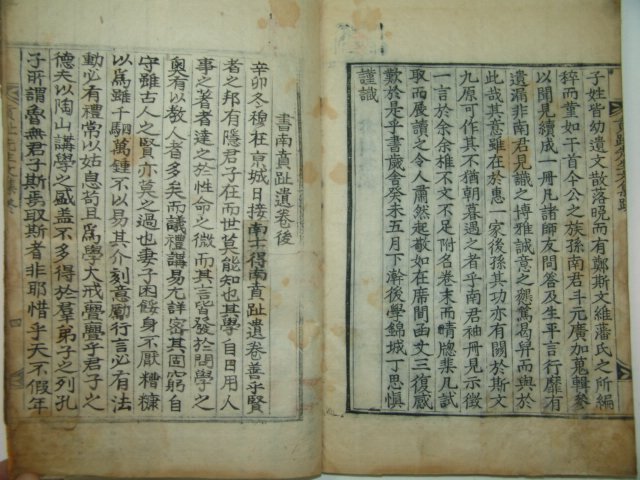 子姓皆幼遺文散落晩而有鄭斯文維藩氏之所編
稡而菫如干首今公之族孫南君斗元廣加蒐輯參
以聞見續成一冊凡諸師友問答及生平言行靡有
遺漏非南君見識之博雅誠意之懇篤曷畀而與於
此哉其意雖在於惠一家後孫其功亦有關於斯文
九原可作其不猶朝暮遇之者乎南君袖冊見示徵
一言於余余椎不文不足附名卷末而晴牕棐几試
取而展讀之令人肅然起敬如在席間函丈三復感
歎於是乎書歲舍癸未五月下澣後學錦城丁思愼
謹識
書南賁趾遺卷後
辛卯冬穆在京城日接南士得南賁趾遺卷善乎賢
者之邦有隱君子在而世莫能知也其學自日用人
事之著者達之於性命之微而其言皆發於問學之
奥有以敎人者多矣而議禮講易尤詳密其固窮自
守雖古人之賢亦莫之過也妻子困餒身不厭糟糠
以爲雖千駟萬鍾不以易其介刻意勵行言必有法
動必有禮常以姑息苟且爲學大戒亹亹乎君子之
德夫以陶山講學之盛盖不多得於羣弟子之列孔
子所謂魯無君子斯焉取斯者非耶惜乎天不假年
四